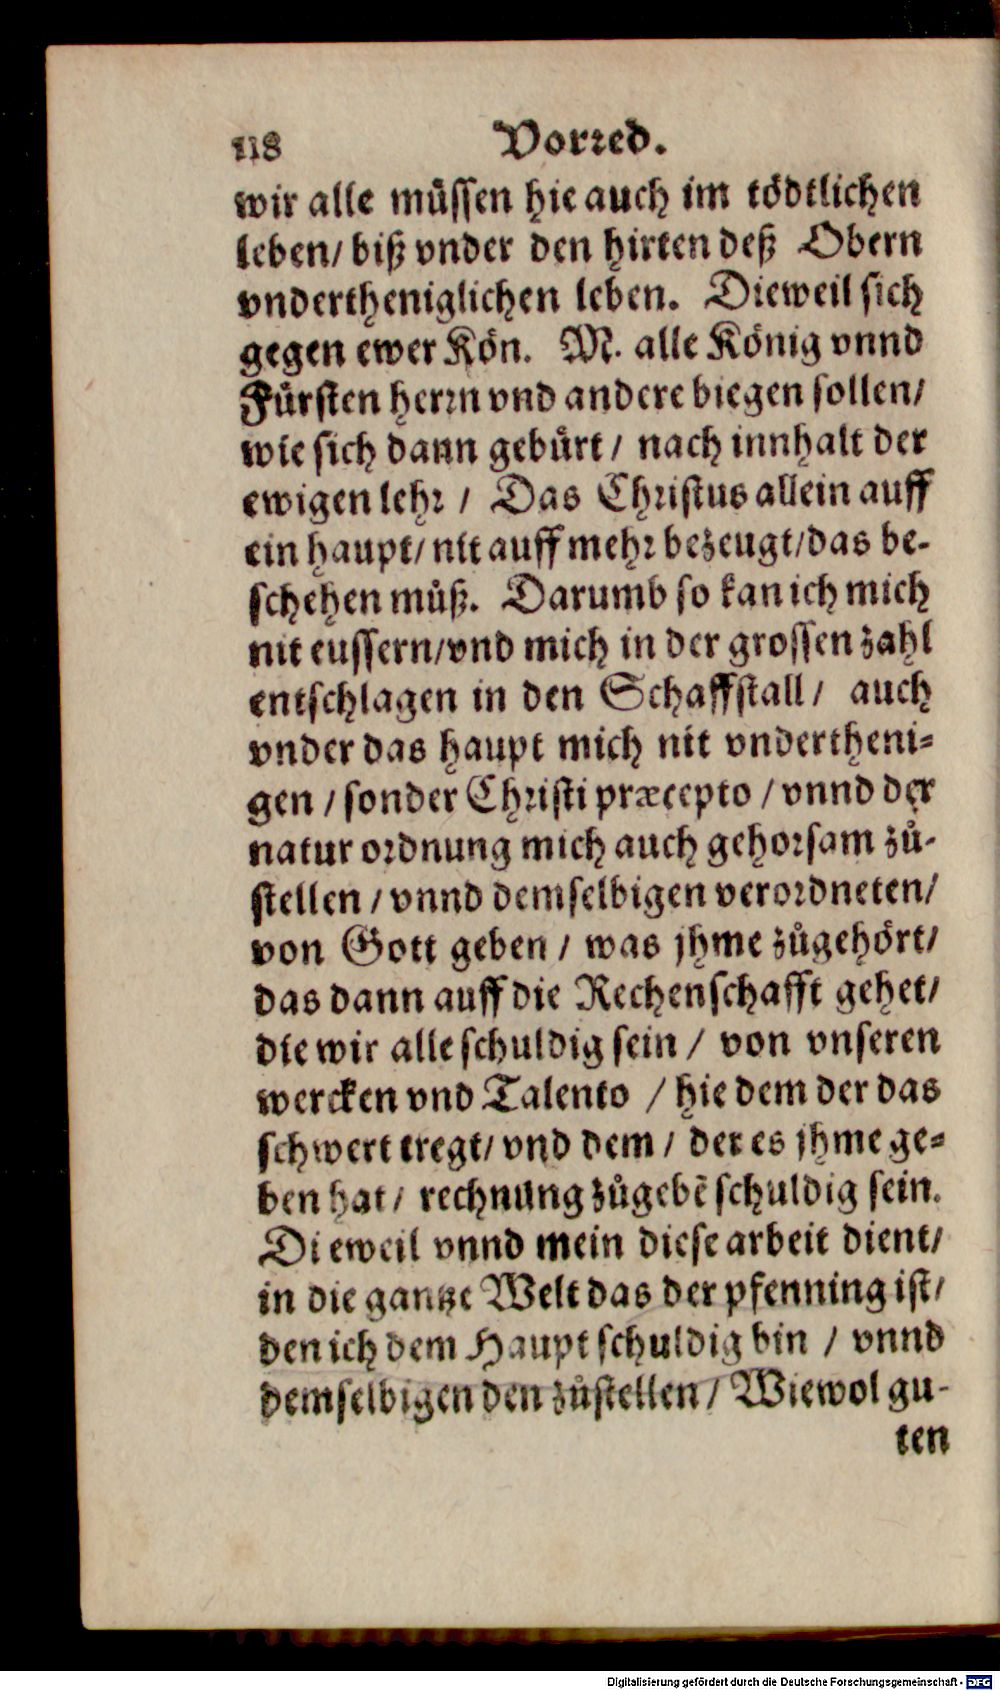 118 Vorred.
wir alle müssen hie auch im tödtlichen
leben/ biß vnder den hirten deß Obern
vndertheniglichen leben. Dieweil sich
gegen ewer Kön. M. alle König vnnd
Fürsten herrn vnd andere biegen sollen/
wie sich dann gebürt/ nach innhalt der
ewigen lehr / Das Christus allein auff
ein haupt/ nit auff mehr bezeugt/das be-
schehen můß. Darumb so kan ich mich
nit eussern/vnd mich in der grossen zahl
entschlagen in den Schaffstall/ auch
vnder das haupt mich nit vndertheni-
gen / sonder Christi præcepto / vnnd der
natur ordnung mich auch gehorsam zů-
stellen / vnnd demselbigen verordneten/
von Gott geben / was jhme zůgehört/
das dann auff die Rechenschafft gehet/
die wir alle schuldig sein / von vnseren
wercken vnd Talento / hie dem der das
schwert tregt/ vnd dem / der es jhme ge-
ben hat/ rechnung zůgebē schuldig sein.
Dieweil vnnd mein diese arbeit dient/
in die gantze Welt das der pfenning ist/
den ich dem Haupt schuldig bin / vnnd
demselbigen den zůstellen/ Wiewol gu-
ten
Digitalisierung gefördert durch die Deutsche Forschungsgemeinschaft - DFG